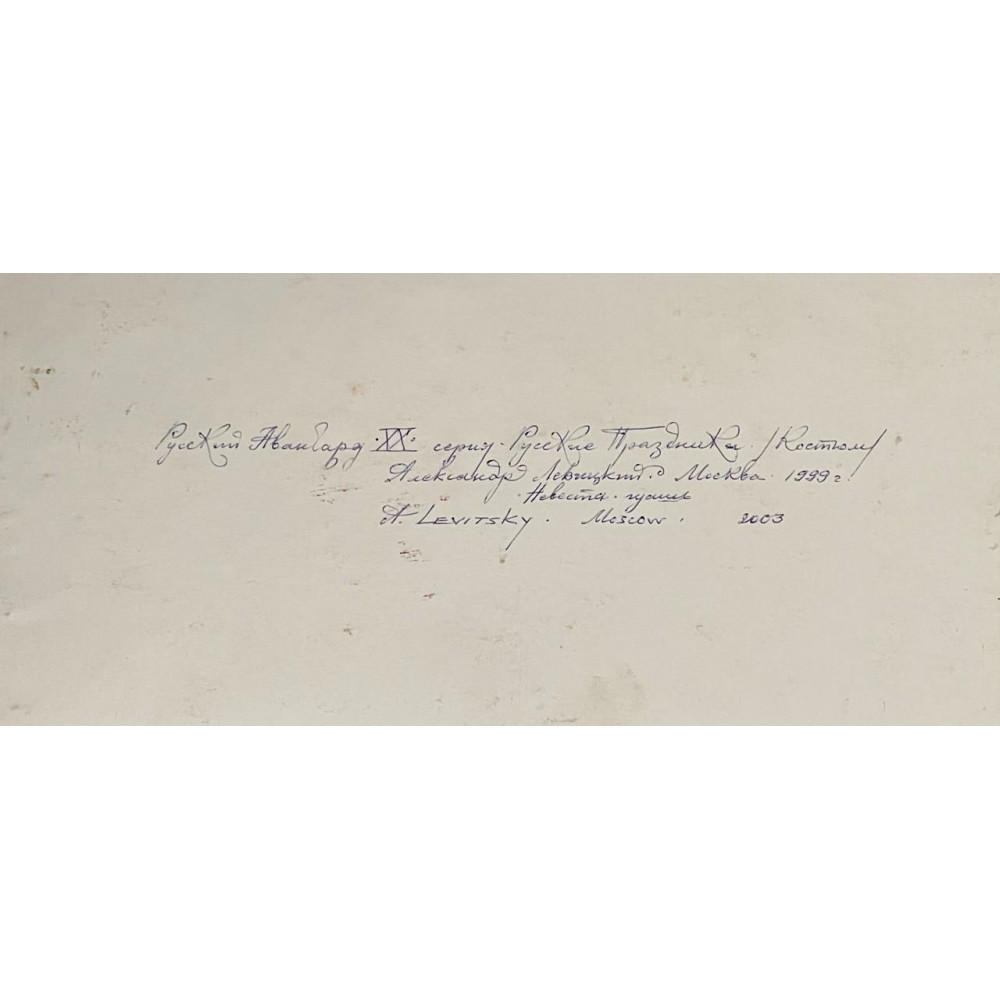 Русский Авангард ·XX· серия · Русские Праздники. /Костюм/
Александр Левицкий. Москва. 1999 г.
· Невеста · гуашь
A. LEVITSKY. Moscow. 2003